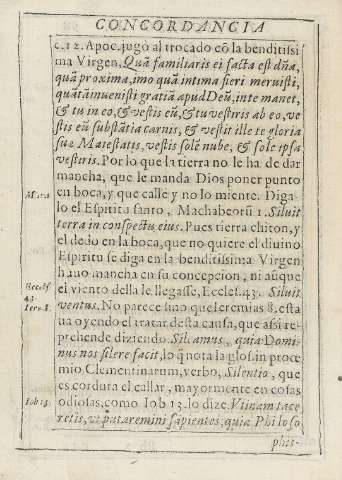 CONCORDANCIA
c. 12. Apoc. jugò al trocado cō la benditissi
ma Virgen, Quā familiaris ei facta est dña,
quā proxima, imo quā intima fieri meruisti,
quātā inuenisti gratiā apud Deū, in te manet,
& tu in eo, & vestis eū, & tu vestiris ab eo, ve
stis eū substātia carnis, & vestit ille te gloria
suæ Maiestatis, vestis solē nube, & sole ipsa
vestiris. Por lo que la tierra no le ha de dar
mancha, que le manda Dios poner punto
en boca, y que calle y no lo miente. Diga
Mac. 1. lo el Espiritu santo, Machabeorū 1. Siluit
terra in conspectu eius. Pues tierra chiton, y
el dedo en la boca, que no quiere el diuino
Espiritu se diga en la benditissima Virgen
huuo mancha en su concepcion, ni aũque
Eccles. el viento della le llegasse, Eccles. 43. Siluit
43.
Iere. 8. ventus. No parece sino que Ieremias 8. esta
ua oyendo el tratar desta causa, que assi re-
prehende diziendo. Sileamus, quia Domi-
nus nos silere facit, lo q̃ nota la glos. in proœ
mio Clementinarum, verbo, Silentio, que
es cordura el callar, mayormente en cosas
Iob 13. odiosas, como Iob 13. lo dize. Vtinam tace
retis, vt putaremini sapientes, quia Philoso
phis-